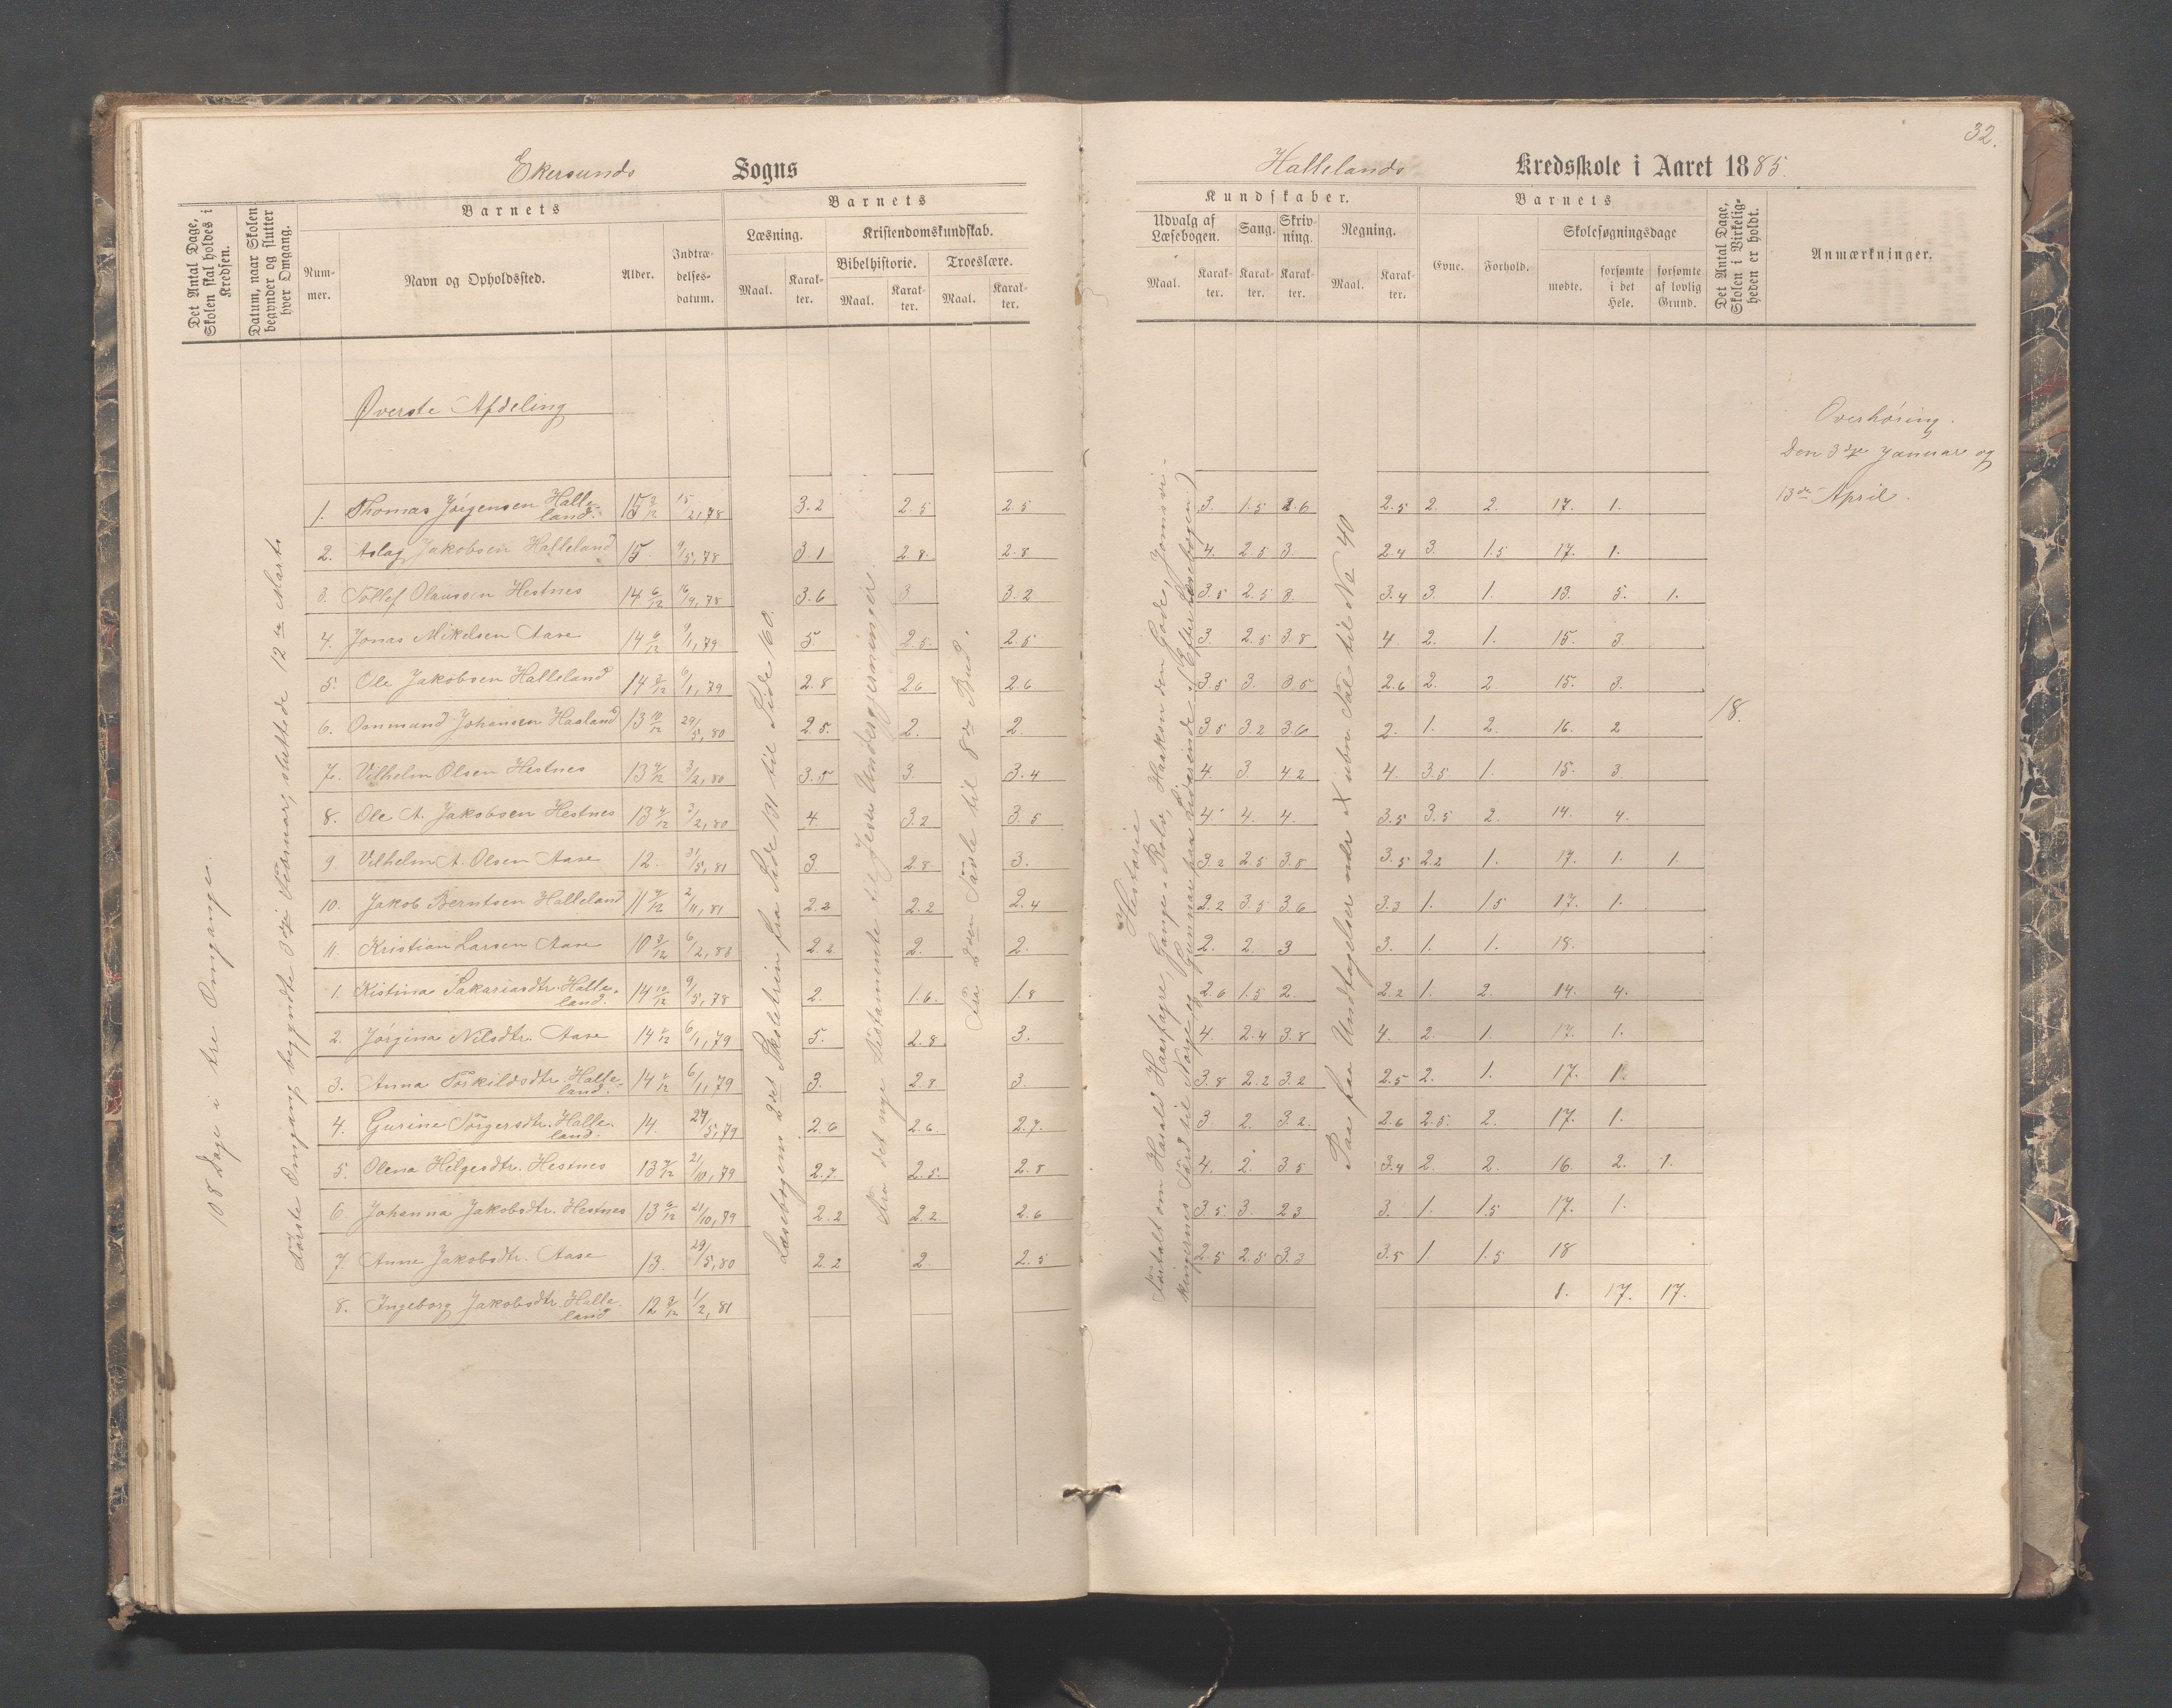 32.
Ekersunds Sogns
Hallelands Kredsskole i Aaret 1885.
Det Antal Dage, Skolen skal holdes i Kredsen.
Datum, naar Skolen begynder og slutter hver Omgang.
Barnets
Nummer.
Navn og Opholdssted.
Alder.
Indtrædelses-datum.
Barnets
Læsning.
Maal.
Karakter.
Kristendomskundskab.
Bibelhistorie.
Maal.
Karakter.
Troeslære.
Maal.
Karakter.
Kundskaber.
Udvalg af Læsebogen.
Maal.
Karakter.
Sang.
Karakter.
Skrivning.
Karakter.
Regning.
Maal.
Karakter.
Barnets
Evne.
Forhold.
Skolesøgningsdage
mødte.
forsømte i det Hele.
forsømte af lovlig Grund.
Det Antal Dage, Skolen i Virkeligheden er holdt.
Anmærkninger.
Øverste Afdeling
Overhøring.
Den 3die Januar og
13de April.
108 Dage i tre Omgange.
Første Omgang begyndte 3die Februar, sluttede 12te Marts
Læsebogens 2det Skoletrin fra Side 131 til Side 160.
Fra det nye Testamente til Jesu Undergjerninger.
Fra 2den Tavle til 8de Bud.
Historie
Fortalt om Harald Haarfagre, Gange-Rolv, Haakon den Gode, Jomsvi-
kingernes Færd til Norge og Gunnar paa Lidarende (Efter Læsebogen)
18.
1. Thomas Jörgensen Halleland. 15 3/12 15/2,78 3.2 2.5 2.5 3. 1.5 2.6 2.5 2. 2. 17. 1.
2. Aslag Jakobsen Halleland 15. 9/5,78 3.1 2.8. 2.8 4. 2.5 3. 2.4 3. 1.5 17. 1.
3. Tollef Olaussen Hestnes 14 6/12 16/9,78 3.6 3 3.2 3.5 2.5 3. 3.4 3. 1. 13. 5. 1.
4. Jonas Mikelsen Aase 14 6/12 9/1,79 5. 2.5. 2.5 3. 2.5 3.8 4 2. 1. 15. 3.
5. Ole Jakobsen Halleland 14 3/12 6/1,79 2.8 2.6 2.6 3.5 3. 3.5 2.6 2. 2 15. 3.
6. Osmund Johansen Haaland 13 10/12 29/5,80 2.5. 2. 2. 3.5 3.2 3.6 2. 1. 2. 16. 2
7. Vilhelm Olsen Hestnes 13 4/12 3/2,80 3.5 3. 3.4 4. 3. 4.2 4. 3.5 1. 15. 3.
8. Ole A. Jakobsen Hestnes 13 4/12 3/2,80 4. 3.2 3.5 4. 4. 4. 3.5 3.5 2. 14. 4.
9. Vilhelm A. Olsen Aase 12. 31/5,81 3. 2.8 3. 3.2 2.5 3.8 3.5 2.2 1. 17. 1. 1.
10. Jakob Berntsen Halleland 11 7/12 2/11,81 2.2 2.2 2.4 2.2 3.5 3.6 3.3 1. 1.5 17. 1.
11. Kristian Larsen Aase 10 3/12 6/2,83 2.2 2. 2. 2. 2. 3 3. 1. 1. 18.
1. Kistina Sakariasdtr. Halleland. 14 10/12 9/5,78 2. 1.6. 1.8 2.6 1.5 2. 2.2 1. 2. 14. 4.
2. Jörgina Nilsdtr. Aase 14 5/12 6/1,79 5. 2.8 3. 4. 2.4 3.8 4. 2. 1. 17. 1.
3. Anna Torkildsdtr. Halleland. 14 5/12 6/1,79 3. 2.8 3. 3.8 2.2 3.2 2.5 2. 1. 17. 1.
4. Gurine Torgersdtr. Halleland. 14. 24/5,79 2.6 2.6. 2.7. 3. 2. 3.2. 2.6 2.5. 2. 17. 1.
5. Olena Helgesdtr. Hestnes 13 7/12 21/10,79 2.7. 2.5. 2.8 4. 2. 3.5 3.4 2. 2. 16. 2. 1.
6. Johanna Jakobsdtr. Hestnes 13 9/12 21/10,79 2.2 2.2 2.6 3.5. 3. 2.3 3. 1. 1.5 17. 1.
7. Anne Jakobsdtr. Aase 13. 29/5,80 2.2 2. 2.5 2.5 2.5 3.3 3.5 1. 1.5 18
8. Ingeborg Jakobsdtr. Halleland 12 3/12 1/2,81 1. 17. 17.